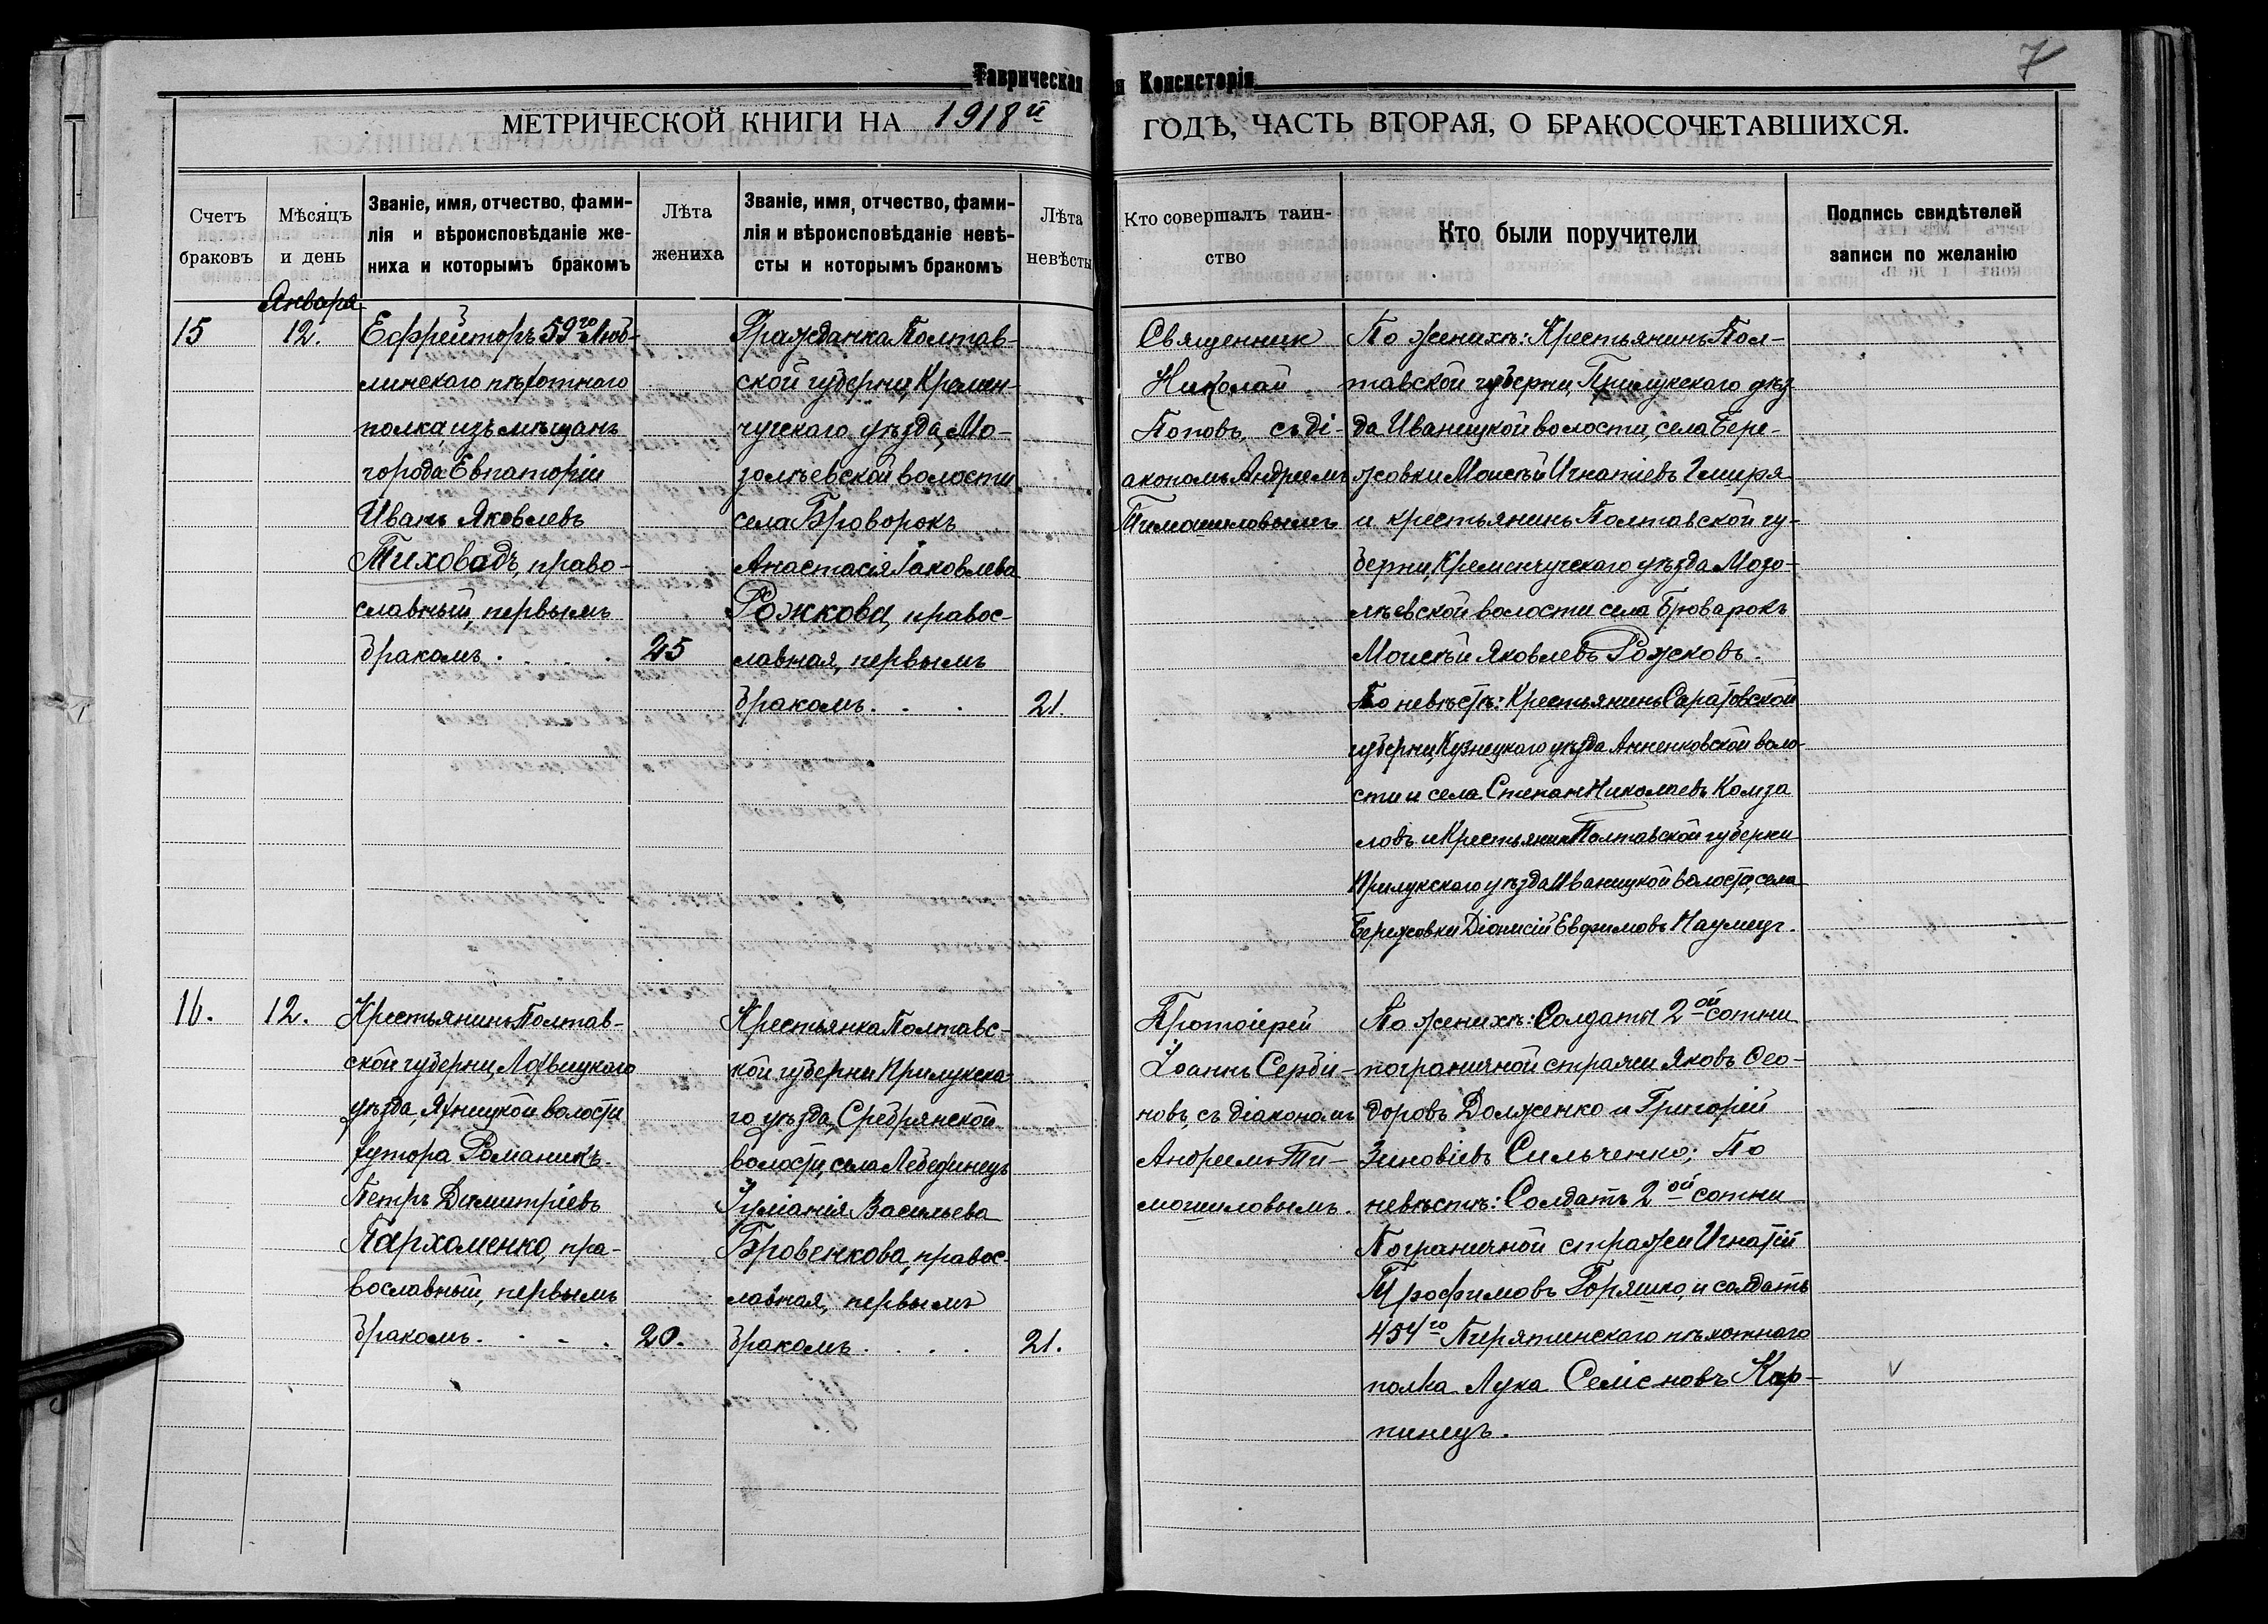 7
Таврическая я Консисторія
МЕТРИЧЕСКОЙ КНИГИ НА 1918й ГОДЪ, ЧАСТЬ ВТОРАЯ, О БРАКОСОЧЕТАВШИХСЯ.
Счетъ
браковъ
Мѣсяцъ
и день
Званіе, имя, отчество, фами-
лія и вѣроисповѣданіе же-
ниха и которымъ бракомъ
Лѣта
жениха
Званіе, имя, отчество, фами-
лія и вѣроисповѣданіе невѣ-
сты и которымъ бракомъ
Лѣта
невѣсты
Кто совершалъ таин-
ство
Кто были поручители
Подпись свидѣтелей
записи по желанію
Января
15
12.
Ефрейторъ 59го Люб-
линскаго пѣхотнаго
полка, изъ мѣщанъ
города Евпаторіи
Иванъ Яковлевъ
Тиховадъ, право-
славный, первымъ
бракомъ. . . .
25
Гражданка Полтав-
ской губерніи, Кремен-
чугскаго уѣзда, Мо-
золѣевской волости
села Броворокъ
Анастасія Іаковлева
Рожкова, правос-
лавная, первымъ
бракомъ. . .
21.
Священникъ
Николай
Поповъ, съ ді-
акономъ Андреемъ
Тимошиловымъ
По женихѣ: Крестьянинъ Пол-
тавской губерніи, Прилукскаго уѣз-
да Иваницкой волости, села Бере-
жовки Моисѣй Игнатіевъ Гмиря
и крестьянинъ Полтавской гу-
берніи, Кременчугскаго уѣзда Мозо-
лѣевской волости села Броварокъ
Моисѣй Яковлевъ Рожковъ.
По невѣстѣ: Крестьянинъ Саратовской
губерніи, Кузнецкаго уѣзда Анненковской воло-
сти и села Степанъ Николаевъ Комза
ловъ и Крестьянинъ Полтавской губерніи
Прилукскаго уѣзда Иваницкой волости, села
Бережовки Діонисій Евфимовъ Наумец.
16.
12.
Крестьянинъ Полтав-
ской губерніи, Лохвицкаго
уѣзда, Яхницкой волости
хутора Романихъ.
Петръ Димитріевъ
Пархоменко, пра-
вославный, первымъ
бракомъ. . . .
20.
Крестьянка Полтавс-
кой губерніи Прилукска-
го уѣзда, Сребрянской
волости, села Лебединецъ
Іуліанія Васильева
Бровенкова, правос-
лавная, первымъ
бракомъ. . . .
21.
Протоіерей
Іоаннъ Серби-
новъ, съ діакономъ
Андреемъ Ти-
мошиловымъ.
По женихѣ: Солдаты 2ой сотни
пограничной стражи Яковъ Ѳео-
доровъ Долженко и Григорій
Зиновіевъ Сильченко; По
невѣстѣ: Солдатъ 2ой сотни
Пограничной стражи Игнатій
Трофимовъ Горяшко, и солдатъ
454го Пирятинскаго пѣхотнаго
полка Лука Семіоновъ Кар-
пинецъ.